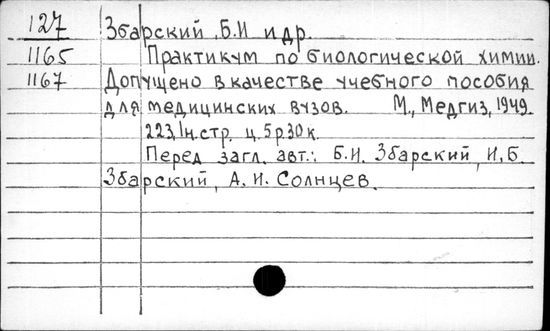 127 Збарский, Б.И и др.
1165 Практикум по биологической химии.
1167 Допущено в качестве учебного пособия
для медицинских вузов. М., Медгиз, 1949.
223,1н.стр. ц. 5р.30к.
Перед загл. авт.: Б.И. Збарский, И.Б.
Збарский, А.И. Солнцев.